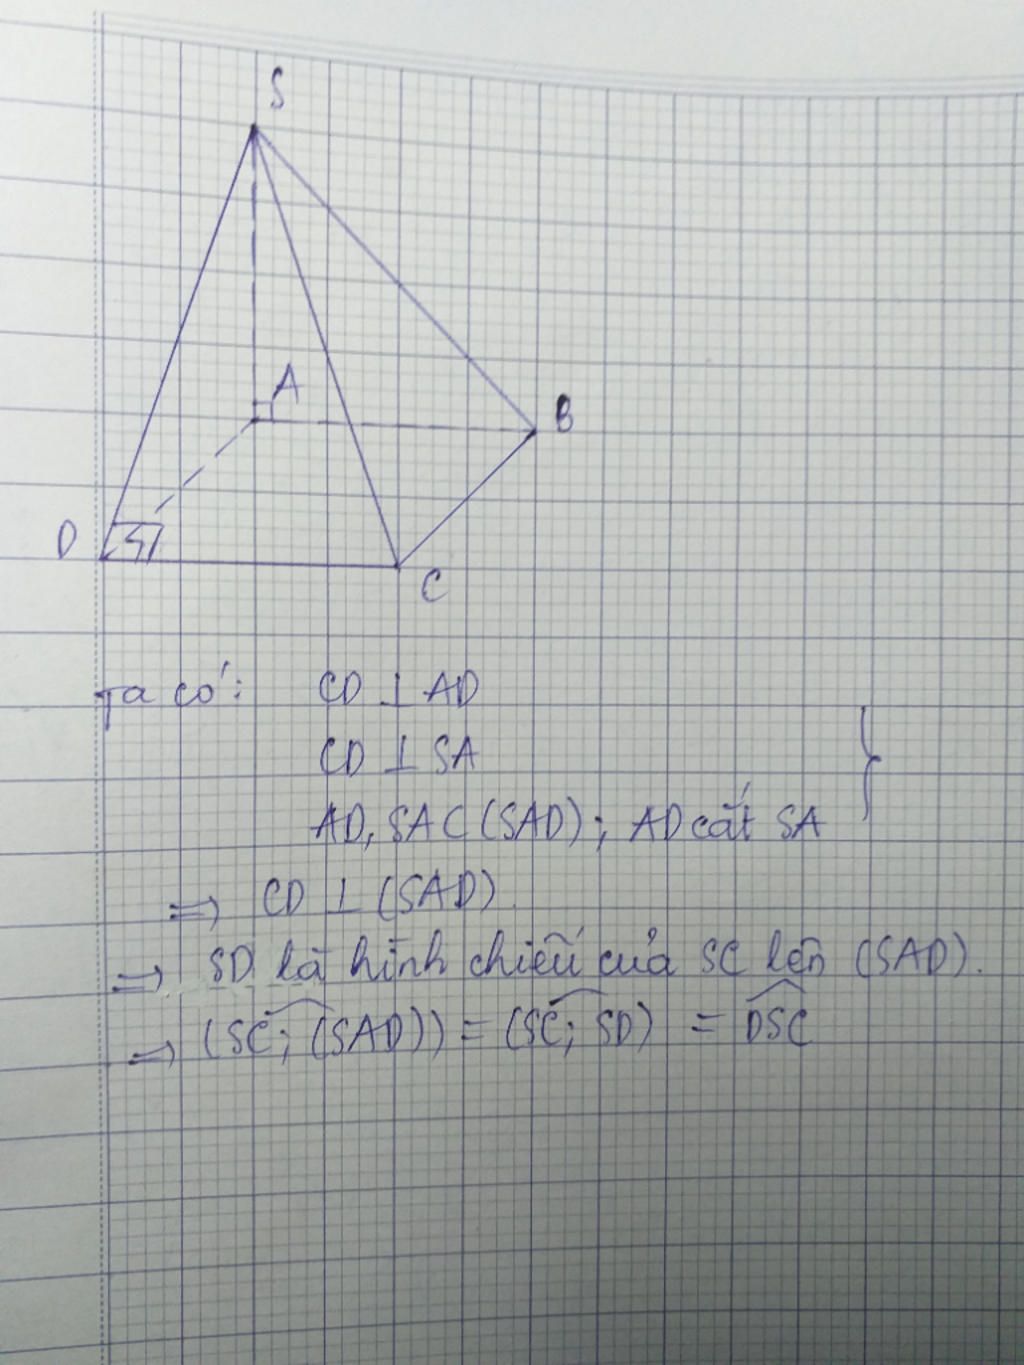 S
A
B
D
C
Ta có: CD ⊥ AD
CD ⊥ SA
AD, SA ⊂ (SAD); AD cắt SA }
=> CD ⊥ (SAD).
=> SD là hình chiếu của SC lên (SAD).
=> (SC; (SAD))^ = (SC; SD)^ = DSC^